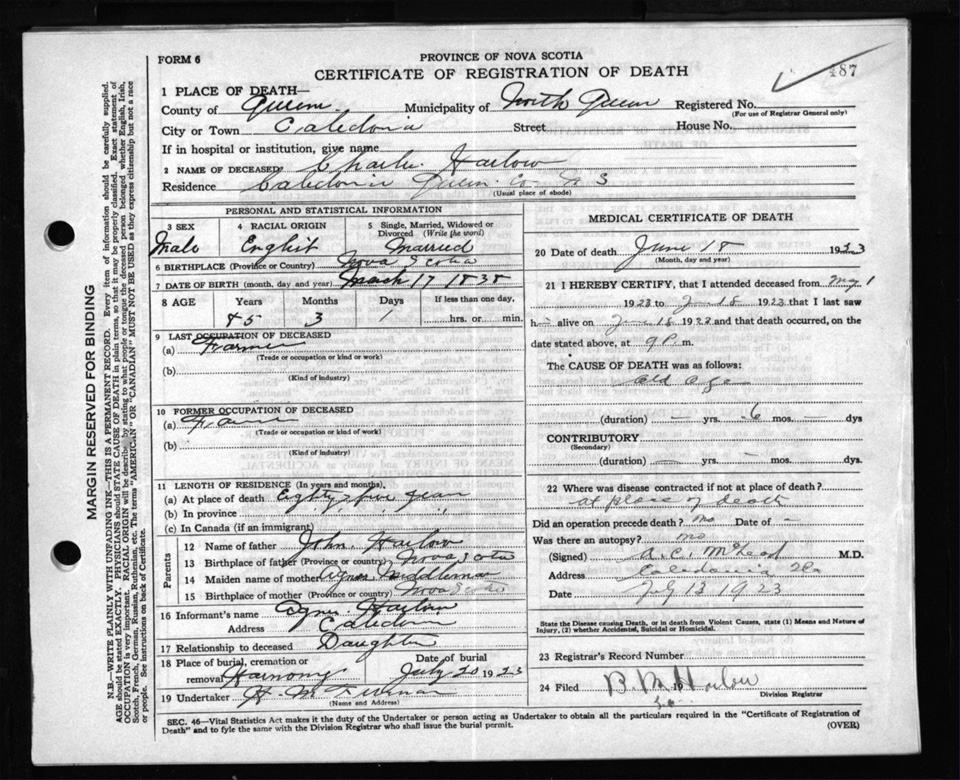 487
FORM 6
PROVINCE OF NOVA SCOTIA
CERTIFICATE OF REGISTRATION OF DEATH
1 PLACE OF DEATH—
County of Queens Municipality of North Queen Registered No.
(For use of Registrar General only)
City or Town Caledonia Street House No.
If in hospital or institution, give name
2 NAME OF DECEASED Charles Harlow
Residence Caledonia Queens Co. N S
(Usual place of abode)
PERSONAL AND STATISTICAL INFORMATION
3 SEX 4 RACIAL ORIGIN 5 Single, Married, Widowed or Divorced (Write the word)
Male English Married
6 BIRTHPLACE (Province or Country) Nova Scotia
7 DATE OF BIRTH (Month, day and year) March 17 1838
8 AGE Years Months Days If less than one day,
85 3 1 hrs. or min.
9 LAST OCCUPATION OF DECEASED
(a) Farmer
(Trade or occupation or kind or work)
(b)
(Kind of industry)
10 FORMER OCCUPATION OF DECEASED
(a)
(Trade or occupation or kind of work)
(b)
(Kind of industry)
11 LENGTH OF RESIDENCE (In years and months).
(a) At place of death Eighty five years
(b) In province " " "
(c) In Canada (if an immigrant)
Parents
12 Name of father John Harlow
13 Birthplace of father (Province or country) Nova Scotia
14 Maiden name of mother Agnes
15 Birthplace of mother (Province or country) Nova Scotia
16 Informant's name Agnes Harlow
Address Caledonia
17 Relationship to deceased Daughter
18 Place of burial, cremation or removal Harmony Date of burial July 20 1923
19 Undertaker
(Name and Address)
MEDICAL CERTIFICATE OF DEATH
20 Date of death June 18 1923
(Month, day and year)
21 I HEREBY CERTIFY, that I attended deceased from May 1
1923 to June 18 1923 that I last saw
h alive on June 18 1923 and that death occurred, on
date stated above, at 9 P. m.
The CAUSE OF DEATH was as follows:
Old Age
(duration) — yrs. 6 mos. — dys
CONTRIBUTORY
(Secondary)
(duration) — yrs. — mos. — dys.
22 Where was disease contracted if not at place of death?
at place of death
Did an operation precede death? no Date of -
Was there an autopsy? no
(Signed) M.D.
Address Caledonia
Date July 13 1923
State the Disease causing Death, or in death from Violent Causes, state (1) Means and Nature of Injury, (2) whether Accidental, Suicidal or Homicidal.
23 Registrar's Record Number
24 Filed 19 B. M. Harlow
Division Registrar
SEC. 46—Vital Statistics Act makes it the duty of the Undertaker or person acting as Undertaker to obtain all the particulars required in the "Certificate of Registration of
Death" and to fyle the same with the Division Registrar who shall issue the burial permit. (OVER)
MARGIN RESERVED FOR BINDING
N.B.—WRITE PLAINLY WITH UNFADING INK—THIS IS A PERMANENT RECORD. Every item of information should be carefully supplied.
AGE should be stated EXACTLY. PHYSICIANS should STATE CAUSE OF DEATH in plain terms, so that it may be properly classified. Exact statement of
OCCUPATION is very important. RACIAL ORIGIN will be described by stating to what people or tongue the deceased person belonged whether English, Irish,
Scotch, French, German, Russian, Ruthenian, etc. The terms "AMERICAN" OR "CANADIAN" MUST NOT BE USED as they express citizenship but not a race
or people. See instructions on back of Certificate.